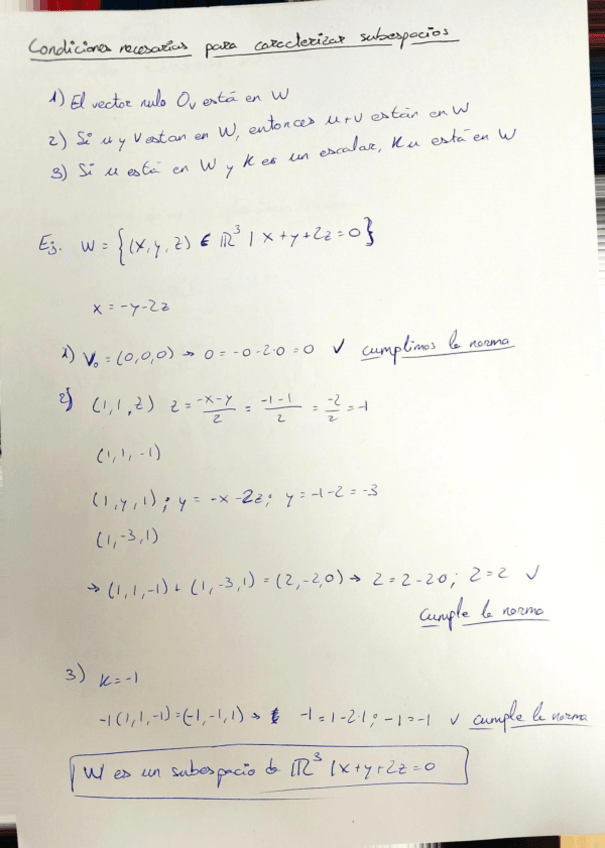 Condiciones necesarias para caracterizar subespacios
1) El vector nulo Ov está en W
2) Si u y v estan en W, entonces u+v están en W
3) Si u está en W y K es un escalar, Ku está en W
Ej. W = {(x,y,z) ∈ ℝ³ | x+y+2z=0}
x = -y-2z
1) V₀ = (0,0,0) → 0 = -0-2·0 = 0 ✓ cumplimos la norma
2) (1,1,z) z = (-x-y)/2 = (-1-1)/2 = -2/2 = -1
(1,1,-1)
(1,y,1); y = -x-2z; y = -1-2 = -3
(1,-3,1)
→ (1,1,-1) + (1,-3,1) = (2,-2,0) → 2=2-2·0; 2=2 ✓
cumple la norma
3) K=-1
-1(1,1,-1)=(-1,-1,1) → -1=1-2·1; -1=-1 ✓ cumple la norma
W es un subespacio de ℝ³ | x+y+2z=0